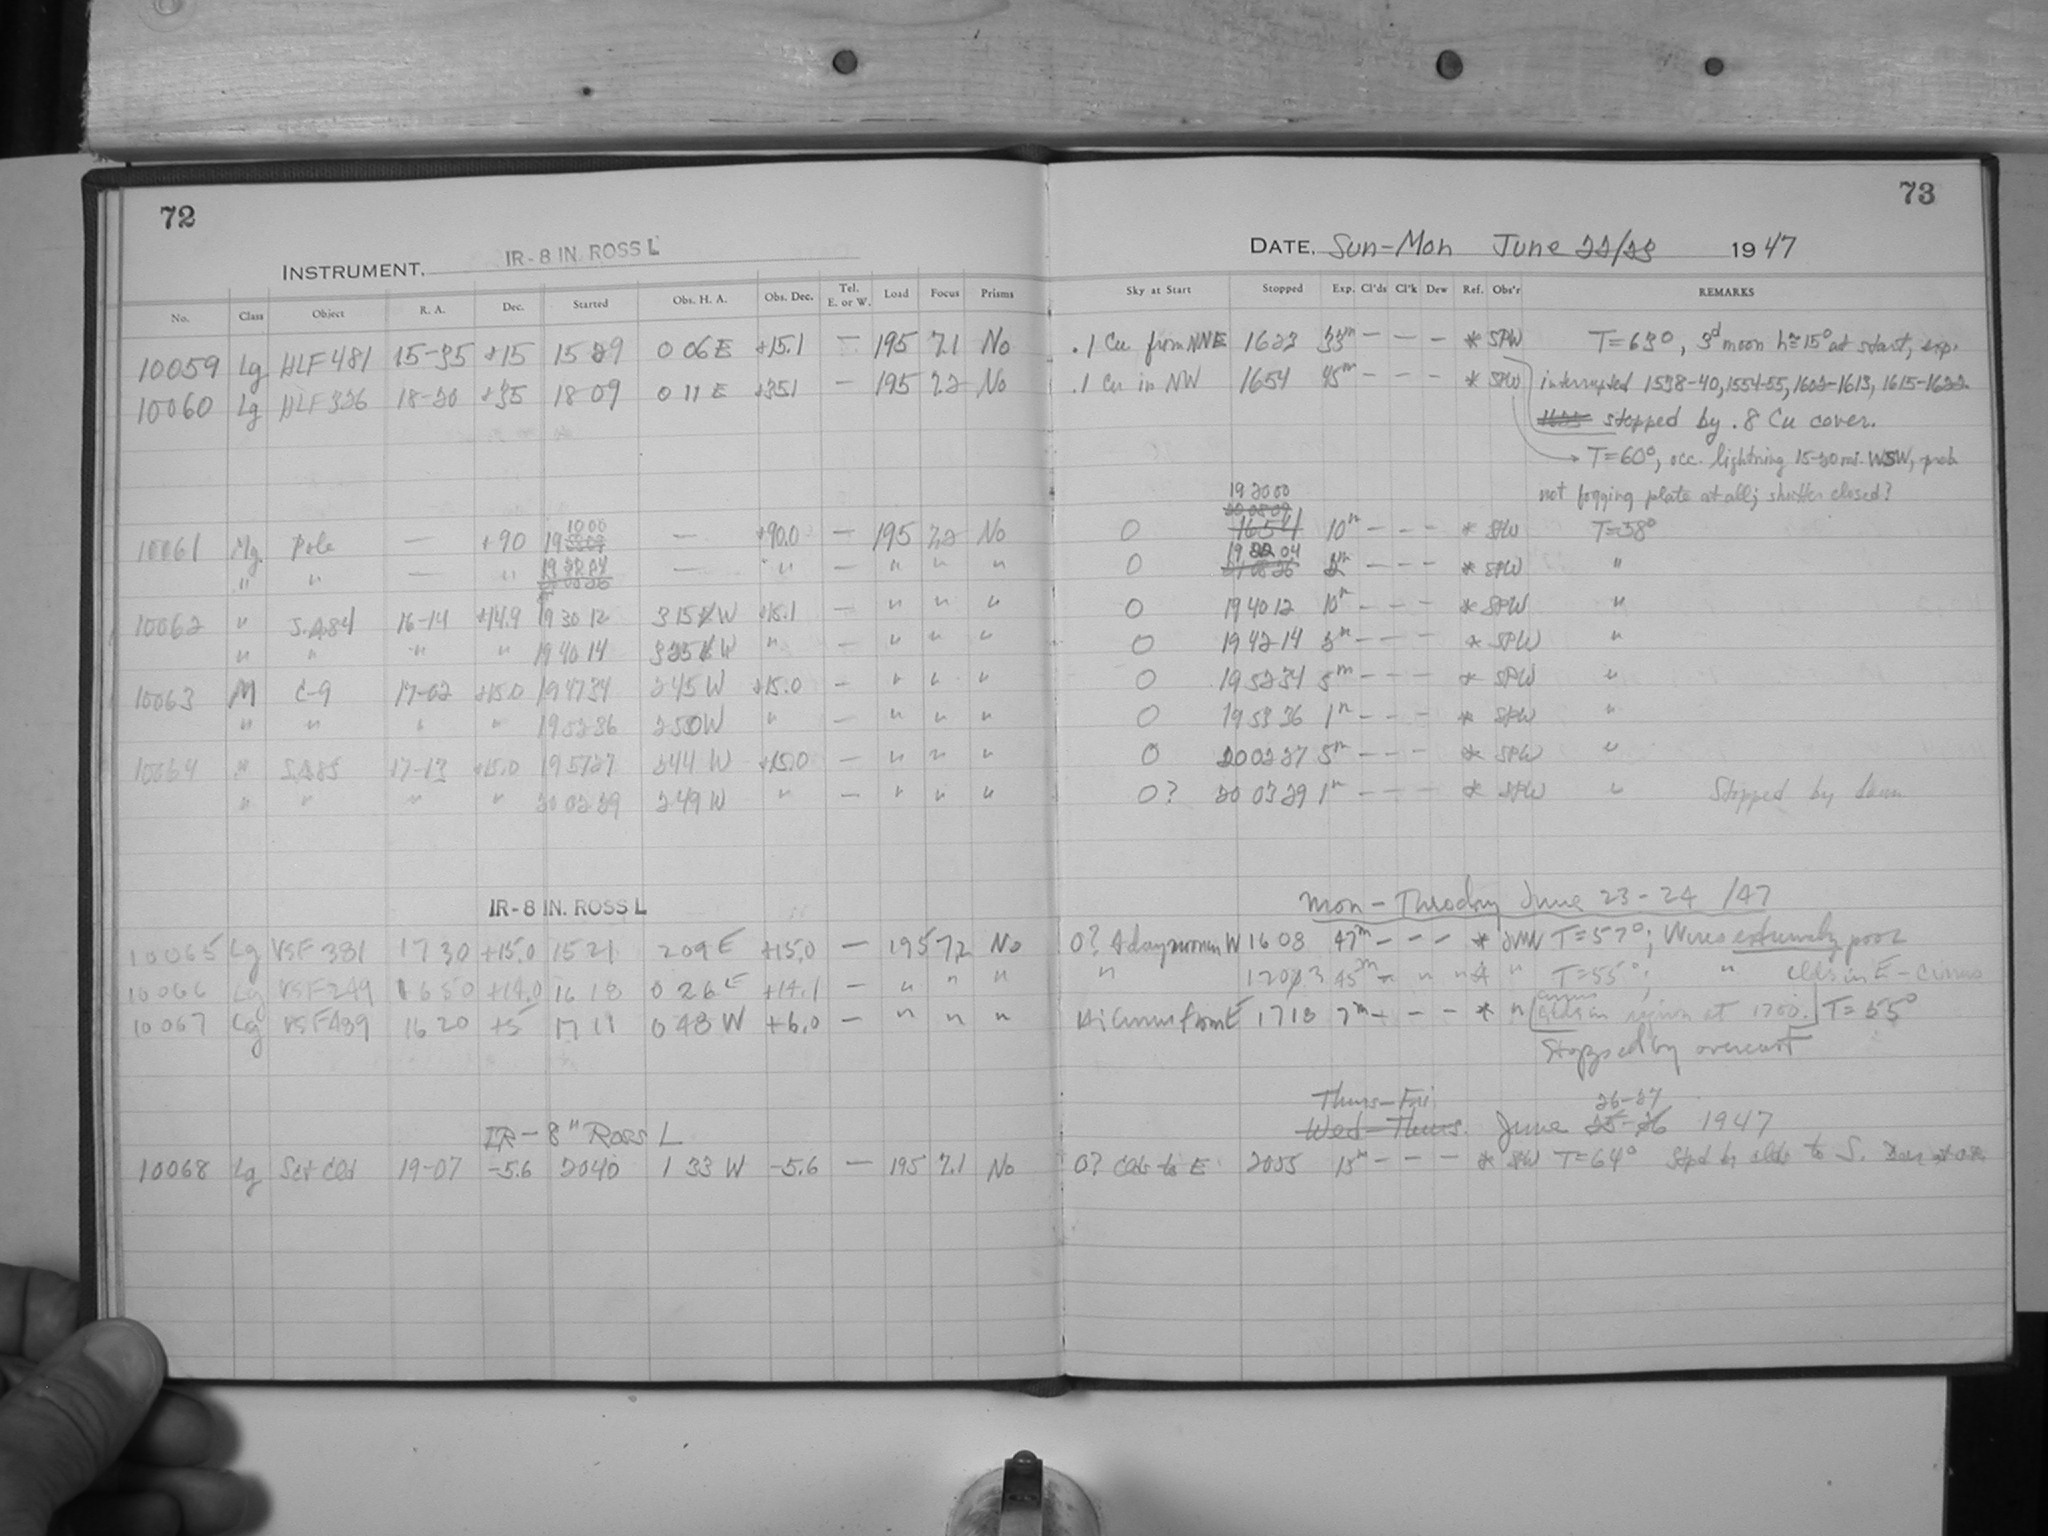 72
73
INSTRUMENT. IR-8 IN. ROSS L
DATE. Sun-Mon June 22/23 1947
No. Class Object R. A. Dec. Started Obs. H. A. Obs. Dec. Tel. E. or W. Load Focus Prisms Sky at Start Stopped Exp. Cl'ds Cl'k Dew Ref. Obs'r REMARKS
10059 Lg HLF 481 15-35 +15 15 29 0 06 E +15.1 — 195 7.1 No .1 Cu from NNE 1623 33m — — — * SPW T=63°, 3d moon h≅15° at start, exp.
10060 Lg HLF 326 18-20 +35 18 09 0 11 E +35.1 — 195 7.2 No .1 Cu in NW 1654 45m — — — * SPW interrupted 1538-40, 1554-55, 1602-1613, 1615-1622.
stopped by .8 Cu cover.
T=60°, occ. lightning 15-20 mi. WSW, prob
not fogging plate at all; shutter closed?
19 20 00
10061 Mg Pole — +90 19 10 00 — +90.0 — 195 7.2 No 0 1654 10m — — — * SPW T=58°
" " — " 19 — " — " " " 0 19 22 04 2m — — — * SPW "
10062 " S.A.84 16-14 +14.9 19 30 12 3 15 W +15.1 — " " " 0 19 40 12 10m — — — * SPW "
" " " " 19 40 14 3 25 W " — " " " 0 19 42 14 2m — — — * SPW "
10063 M C-9 17-02 +15.0 19 47 34 2 45 W +15.0 — " " " 0 19 52 34 5m — — — * SPW "
" " " " 19 52 36 2 50 W " — " " " 0 19 53 36 1m — — — * SPW "
10064 " S.A.85 17-13 +15.0 19 57 27 2 44 W +15.0 — " " " 0 20 02 27 5m — — — * SPW "
" " " " 20 02 29 2 49 W " — " " " 0? 20 03 29 1m — — — * SPW " Stopped by dawn
IR-8 IN. ROSS L
Mon- June 23-24 /47
10065 Lg VSF 381 17 30 +15.0 15 21 2 09 E +15.0 — 195 7.2 No 0? 4 day moon in W 16 08 47m — — — * T=57°; extremely poor
10066 Lg VSF 249 16 50 +14.0 16 18 0 26 E +14.1 — " " " " 45m " T=55°; " clds in E-cirrus
10067 Lg VSF 439 16 20 +5 17 11 0 48 W +6.0 — " " " Hi Cirrus from E 1718 7m — — — * " cirrus clds in region at 1700. T=55°
Stopped by overcast
Thurs-Fri 26-27
Wed-Thurs. June 25-26 1947
IR-8" Ross L
10068 Lg Sct Cld 19-07 -5.6 2040 1 33 W -5.6 — 195 7.1 No 0? Clds to E 2055 15m — — — * SPW T=64° Stpd by clds to S.